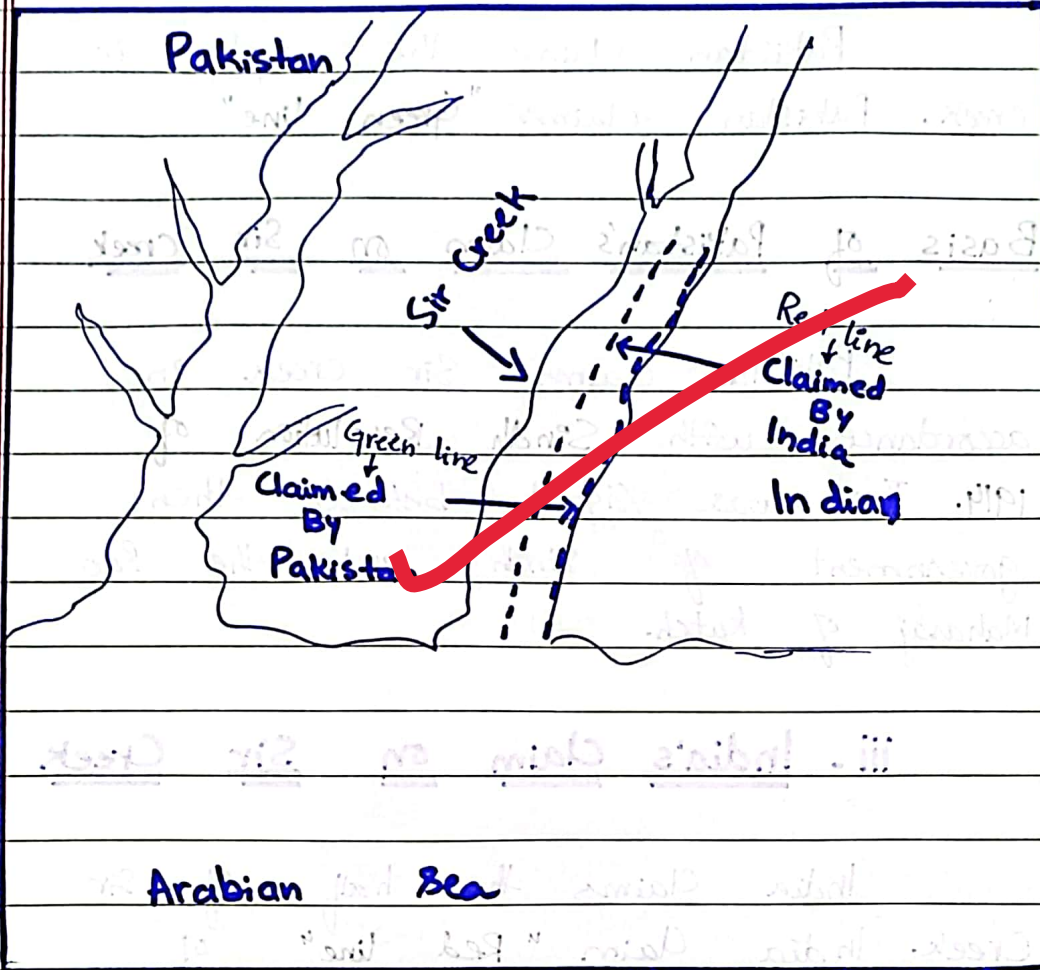 Pakistan
Sir Creek
Red line
Claimed
By
India
Green line
Claimed
By
Pakistan
Indian
Arabian Sea